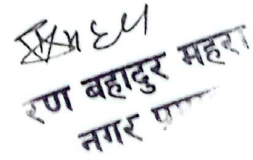 रण बहादुर महरा
नगर